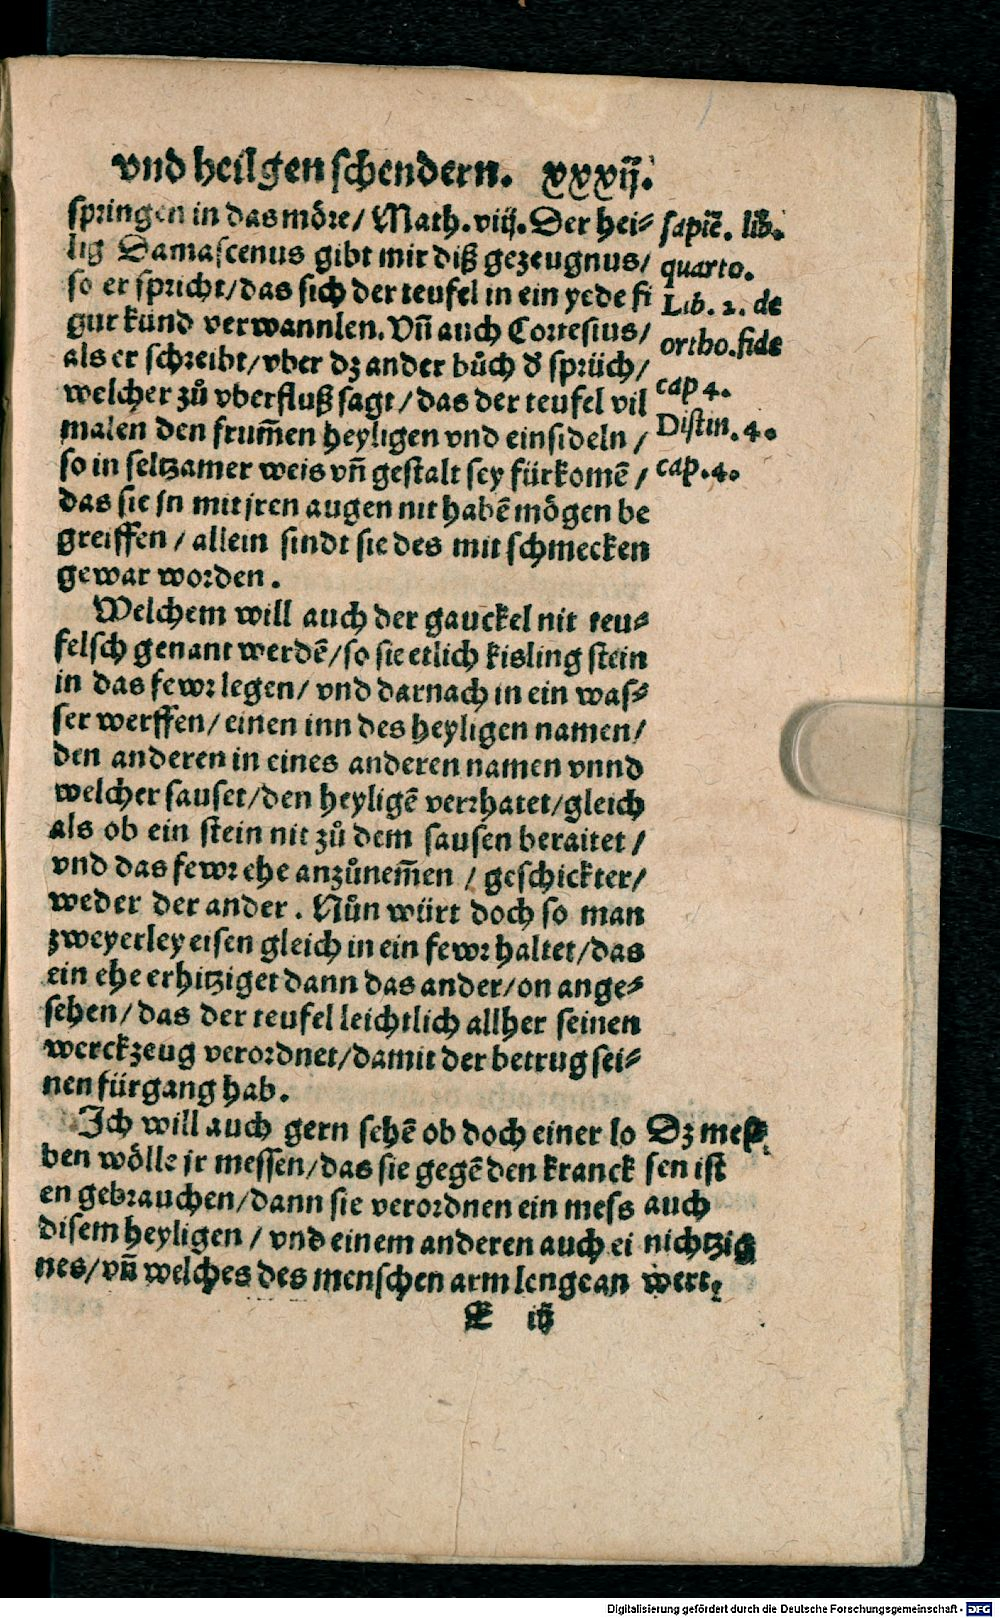 vnd heilgen schendern. xxxij.
springen in das möre/ Math. viij. Der hei⸗
lig Damascenus gibt mir diß gezeugnus/
so er spricht/das sich der teufel in ein yede fi
gur künd verwannlen. Vñ auch Cortesius/
als er schreibt/vber dz ander bůch d' sprüch/
welcher zů vberfluß sagt/das der teufel vil
malen den frum̃en heyligen vnd einsideln/
so in seltzamer weis vñ gestalt sey fürkomẽ/
das sie jn mit jren augen nit habẽ mögen be
greiffen/allein sindt sie des mit schmecken
gewar worden.
Welchem will auch der gauckel nit teu⸗
felsch genant werdẽ/so sie etlich kisling stein
in das fewr legen/vnd darnach in ein was⸗
ser werffen/einen inn des heyligen namen/
den anderen in eines anderen namen vnnd
welcher sauset/den heyligẽ verrhatet/gleich
als ob ein stein nit zů dem sausen beraitet/
vnd das fewr ehe anzůnem̃en/geschickter/
weder der ander. Nůn würt doch so man
zweyerley eisen gleich in ein fewr haltet/das
ein ehe erhitziget dann das ander/on ange⸗
sehen/das der teufel leichtlich allher seinen
werckzeug verordnet/damit der betrug sei⸗
nen fürgang hab.
Ich will auch gern sehẽ ob doch einer lo
ben wölle jr messen/das sie gegẽ den kranck
en gebrauchen/dann sie verordnen ein mess
disem heyligen/vnd einem anderen auch ei
nes/vñ welches des menschen arm lenge an
E iij
sapiẽ. lib.
quarto.
Lib. 2. de
ortho. fide
cap 4.
Distin. 4.
cap. 4.
Dz mes⸗
sen ist
auch
nichtzig
wert.